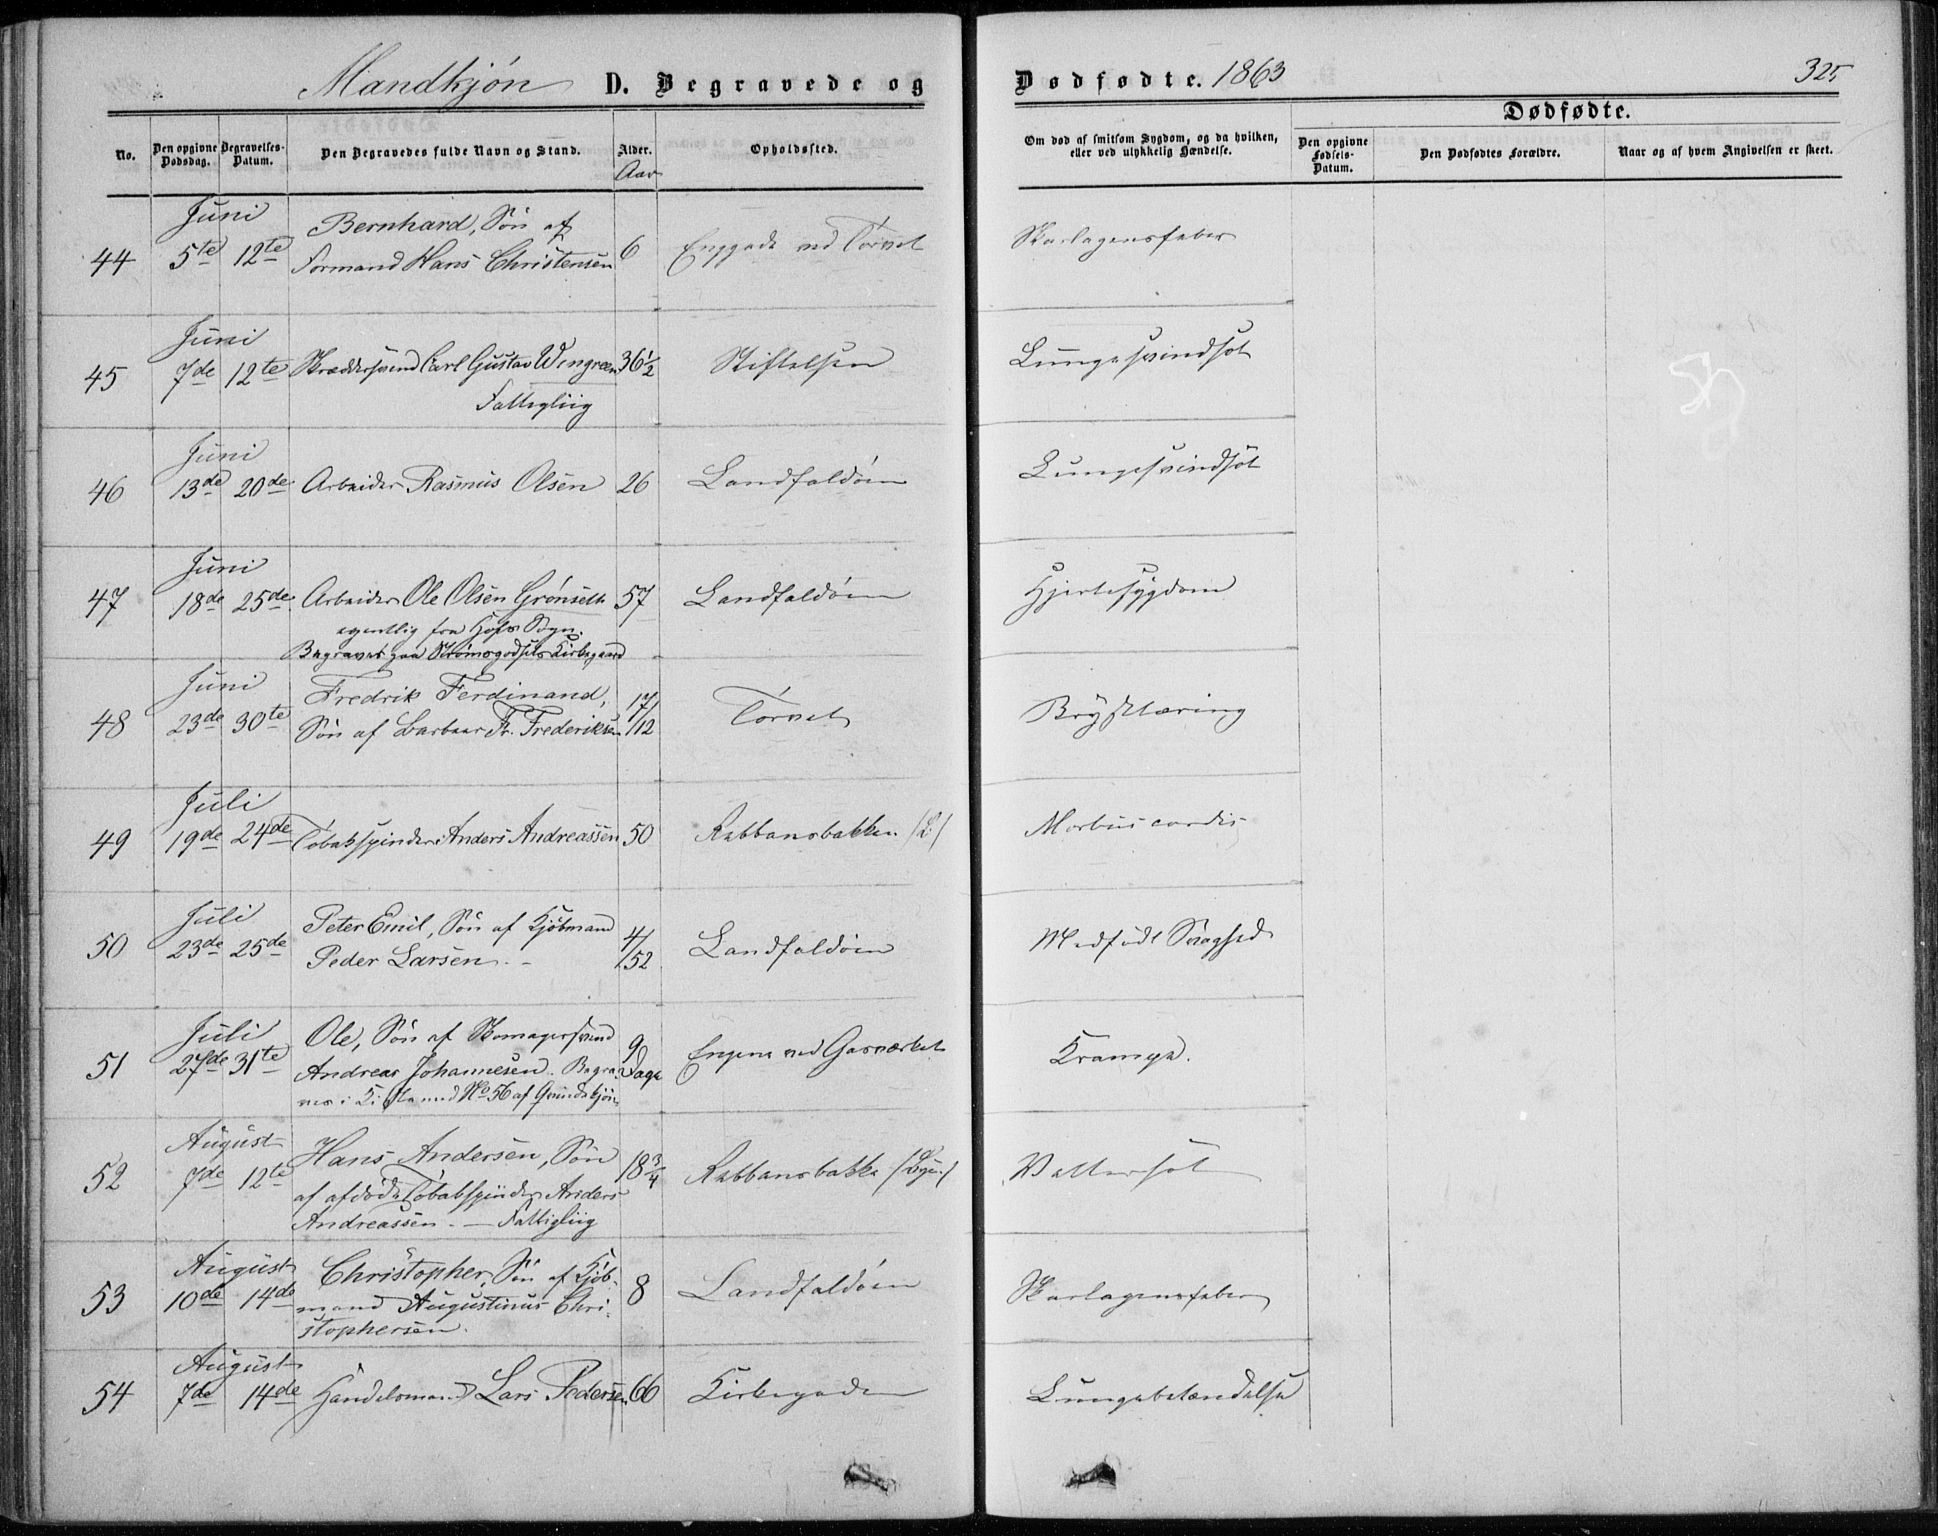 Mandkjøn D. Begravede og Dødfødte. 1863 325
No. Den opgivne Dødsdag. Begravelses-Datum. Den Begravedes fulde Navn og Stand. Alder. Opholdssted. Om død af smitsom Sygdom, og da hvilken, eller ved ulykkelig Hændelse. Dødfødte. Den opgivne Fødsels-Datum. Den Dødfødtes Forældre. Naar og af hvem Angivelsen er skeet.
Aar
Juni Bernhard, Søn af
44 5te 12te Formand Hans Christensen 6 Enggade ved Torvet Skarlagensfeber
Juni
45 7de 12te Skræddersvend Carl Gustav Wengreen 36 1/2 Stiftelsen Lungesvindsot
Fattigliig
Juni
46 13de 20de Arbeider Rasmus Olsen 26 Landfaldøen Lungesvindsot
Juni
47 18de 25de Arbeider Ole Olsen Grønseth 57 Landfaldøen Hjertesygdom
egentlig fra Hofs Sogn.
Begravet paa Strømsgodsets Kirkegaard
Juni Fredrik Ferdinand,
48 23de 30te Søn af Barbeer Fr. Frederiksen 17/12 Torvet Brysttæring
Juli
49 19de 24de Tobakspinder Anders Andreassen 50 Røbbansbakken (L.) Morbus cordis
Juli Peter Emil, Søn af Kjøbmand
50 23de 25de Peder Larsen. - 4/52 Landfaldøen Medfødt Svaghed
Juli Ole, Søn af Skomagersvend 9
51 27de 31te Andreas Johannesen. Begra- Dage Engene ved Gasværket Krampe.
ves i Kiste med No 56 af Qvindekjøn
August Hans Andersen, Søn
52 7de 12te af afdøde Tobakspinder Anders 18 3/4 Røbbansbakke Vattersot
Andreassen. - Fattigliig
August Christopher, Søn af Kjøb-
53 10de 14de mand Augustinus Chri- 8 Landfaldøen Skarlagensfeber
stophersen.
August
54 7de 14de Handelsmand Lars Pedersen 66 Kirkegaden Lungebetændelse